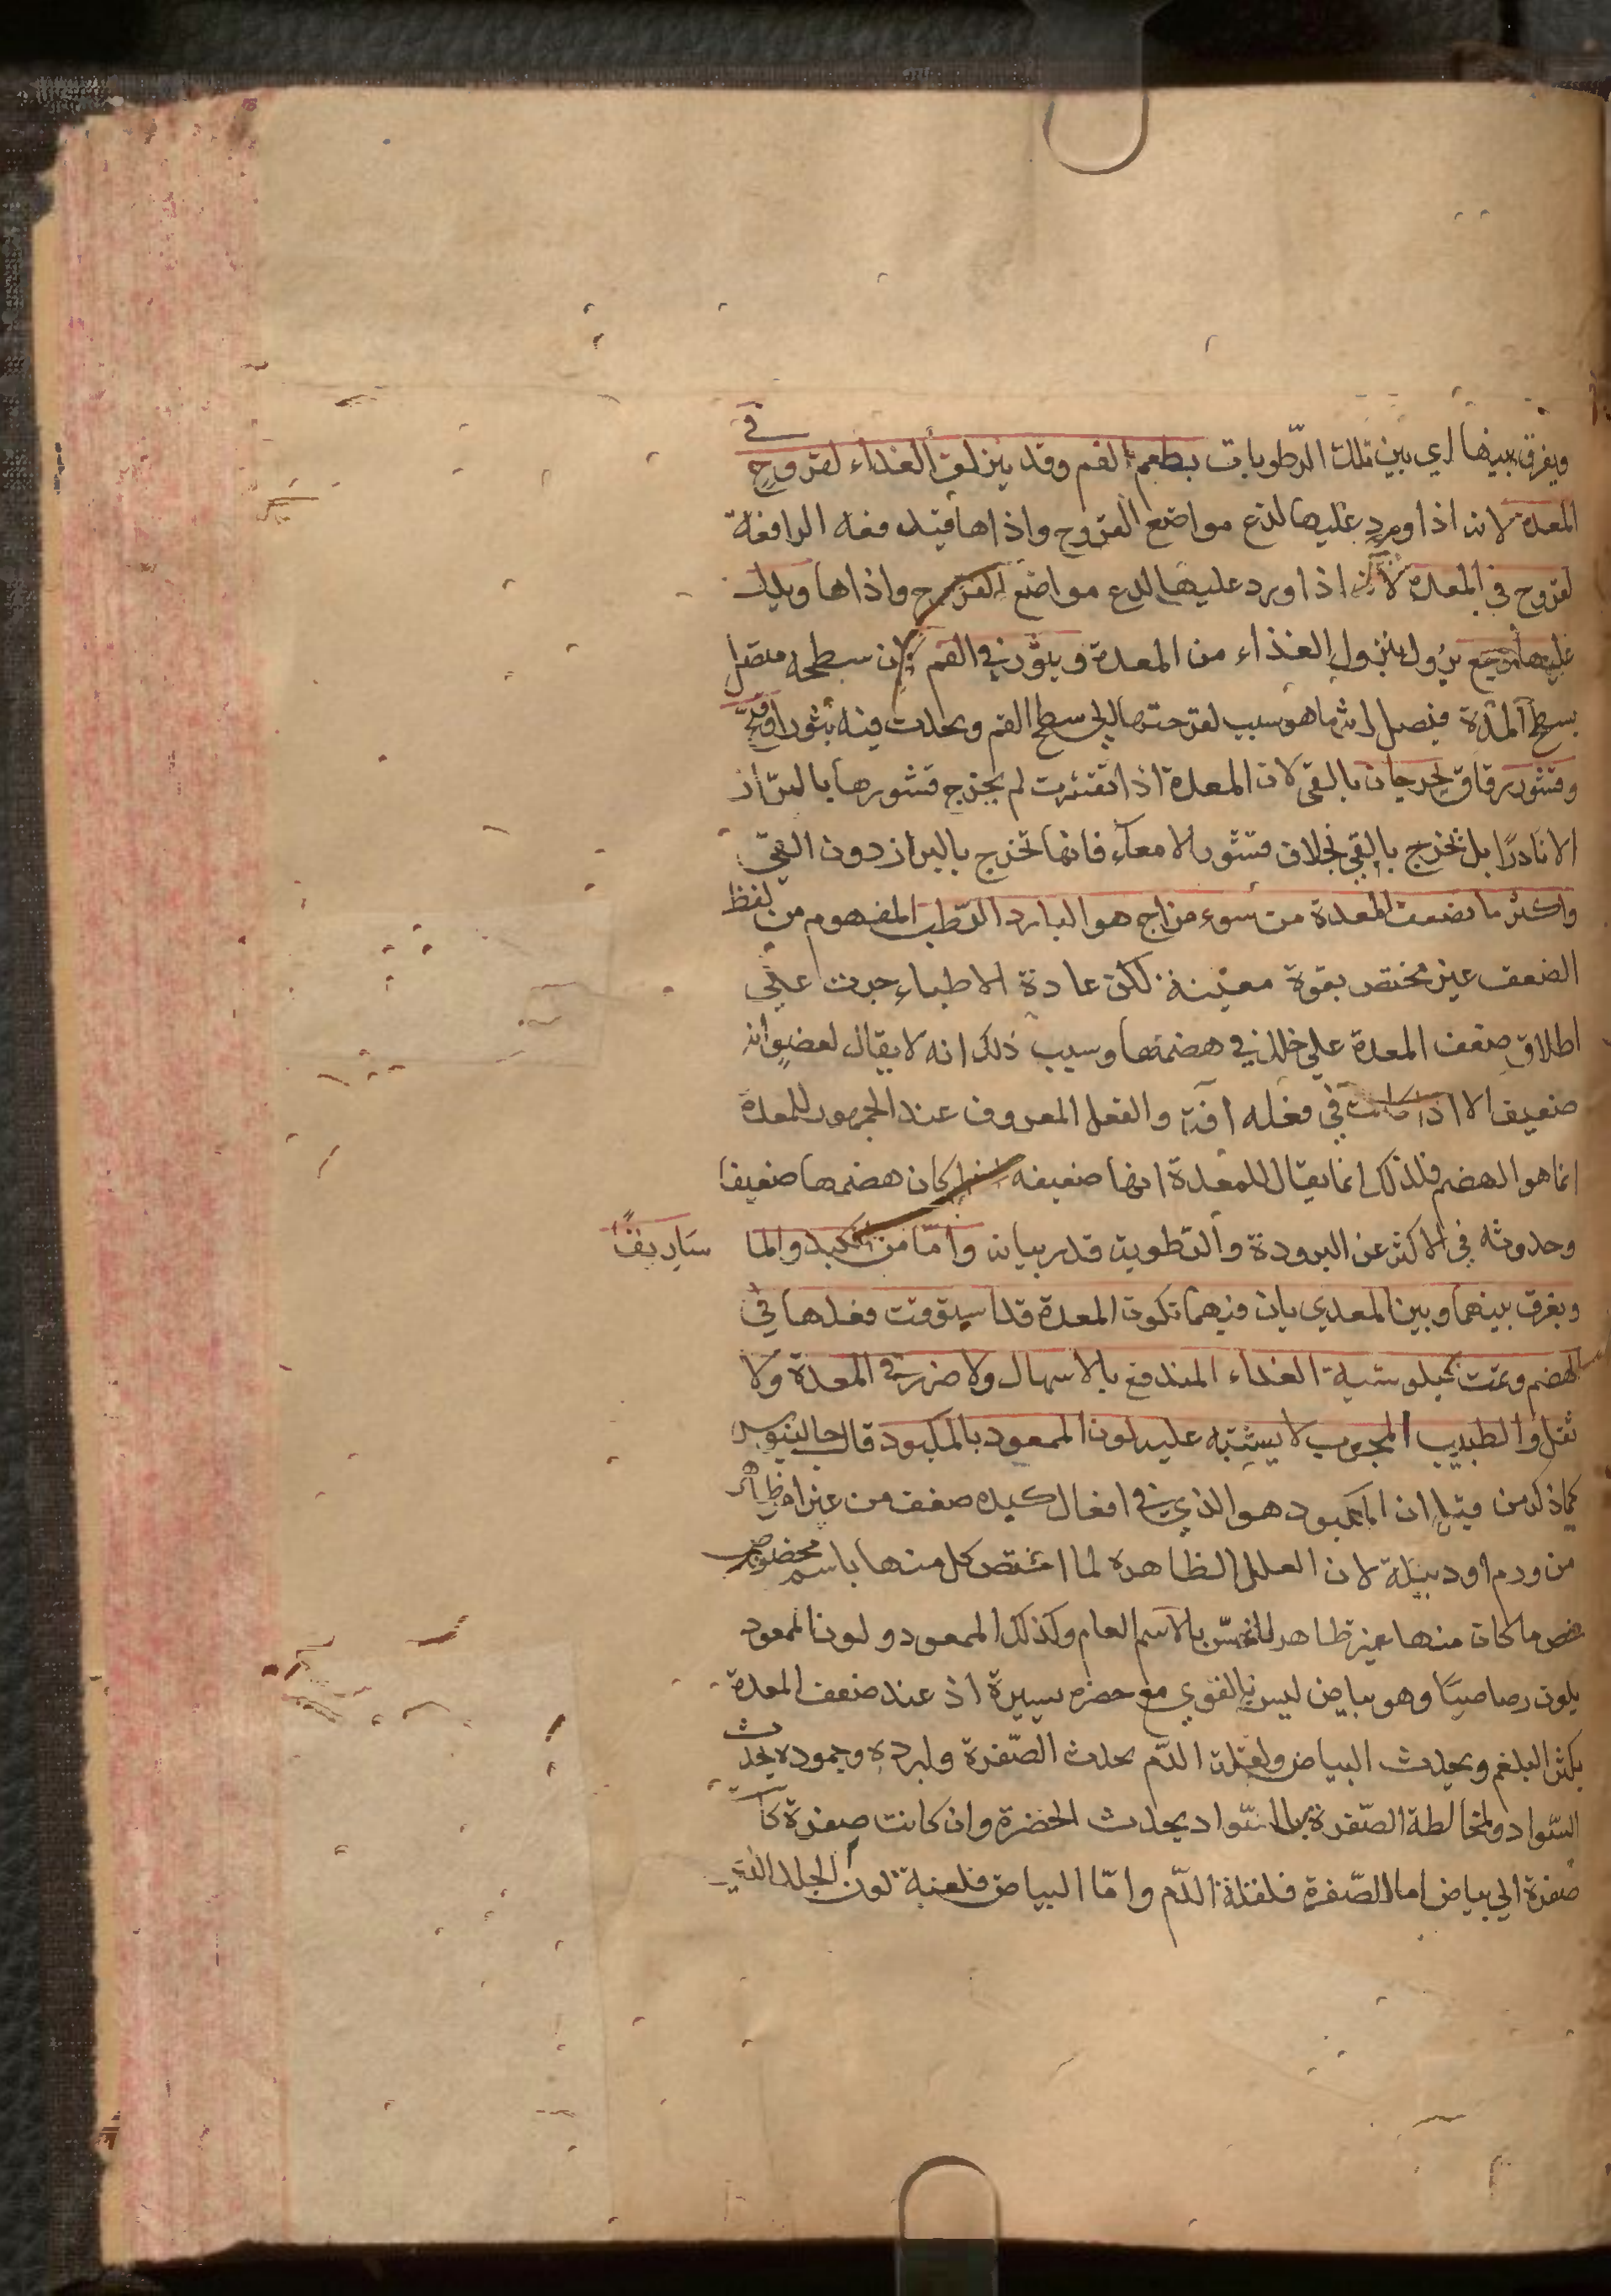 ويفرق بينها اي بين تلك الرّطوبات بطعم الفم وقد ينزلق الغذاء لقروح في
المعدة لانه اذا ورد عليها لذع مواضع القروح واذاها فتدفعه الدافعة
لقروح في المعدة لانه اذا ورد عليها لذع مواضع القروح واذاها ويدل
عليها وجع نزول الغذاء من المعدة وبثور في الفم لان سطحه متصل
بسطح المعدة فيصل اثر ما هو سبب لقرحتها الى سطح الفم ويحدث فيه بثورا وقيح
وقشور رقاق يخرجان بالقي لان المعدة اذا تقشرت لم يخرج قشورها بالبراز
الا نادرًا بل تخرج بالقي بخلاف قشور الامعاء فانها تخرج بالبراز دون القي
واكثر ما تضعف المعدة من سوء مزاج هو البارد الرّطب المفهوم من لفظ
الضعف غير مختص بقوة معينة لكن عادة الاطباء جرت على
اطلاق ضعف المعدة على خلل في هضمها وسبب ذلك انه لا يقال لعضو انه
ضعيف الا اذا كانت في فعله افة والفعل المعروف عند الجمهور للمعدة
انما هو الهضم فلذلك انما يقال للمعدة انها ضعيفه اذا كان هضمها ضعيفا
وحدوثه في الاكثر عن البرودة والرّطوبة قد ربيانه وامّا من الكبد والما ساريقا
ويفرق بينهما وبين المعدي بان فيهما تكون المعدة قد استوفت فعلها في
الهضم وتمت كيلوسية الغذاء المندفع بالاسهال ولا ضرر في المعدة ولا
ثقل والطبيب المجرب لا يشتبه عليه لون الممعود بالمكبود قال جالينوس
كما ذكر من قبل ان المكبود هو الذي في افعال كبده ضعف من غير امر ظاهر
من ورم او دبيلة لان العلل الظاهرة لما اختص كل منها باسم مخصوص
خص ما كان منها غير ظاهر للحسّ بالاسم العام وكذلك الممعود ولون الممعود
يكون رصاصيًا وهو بياض ليس بالقوي مع خضرة يسيرة اذ عند ضعف المعدة
يكثر البلغم ويحدث البياض ولقلة الدّم يحدث الصّفرة ولبرده وجموده يحدث
السّواد ولمخالطة الصّفرة بالسّواد يحدث الخضرة وان كانت صفرة كانت
صفرة الى بياض اما الصّفرة فلقلة الدّم وامّا البياض فلغلبة لون الجلد الذي